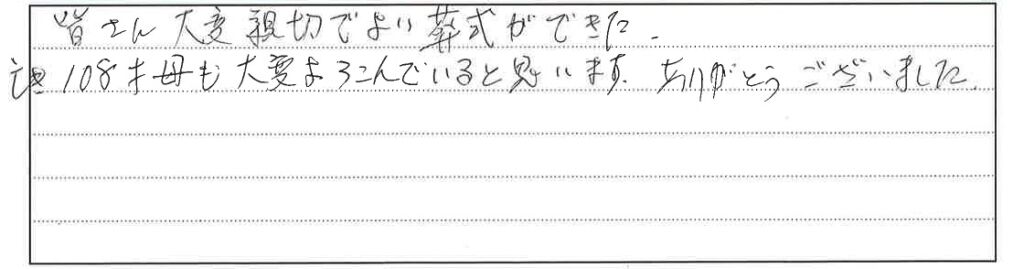 皆さん大変親切でよい葬式ができた.
108才母も大変よろこんでいると思います. ありがとうございました.